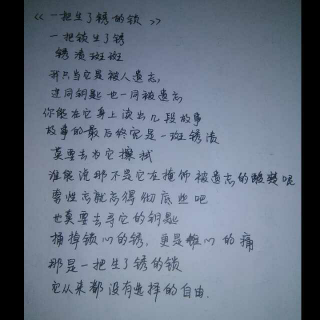 《一把生了锈的锁》
一把锁生了锈
锈渍斑斑
那只当它是被人遗忘
连同钥匙也一同被遗忘
你能在它身上读出几段故事
故事的最后终究是一斑锈渍
莫要去为它擦拭
谁能说那不是它在掩饰被遗忘的酸楚呢
要怪忘就忘得彻底些吧
也莫要去寻它的钥匙
捅掉锁心的锈，更是锥心的痛
那是一把生了锈的锁
它从来都没有选择的自由.